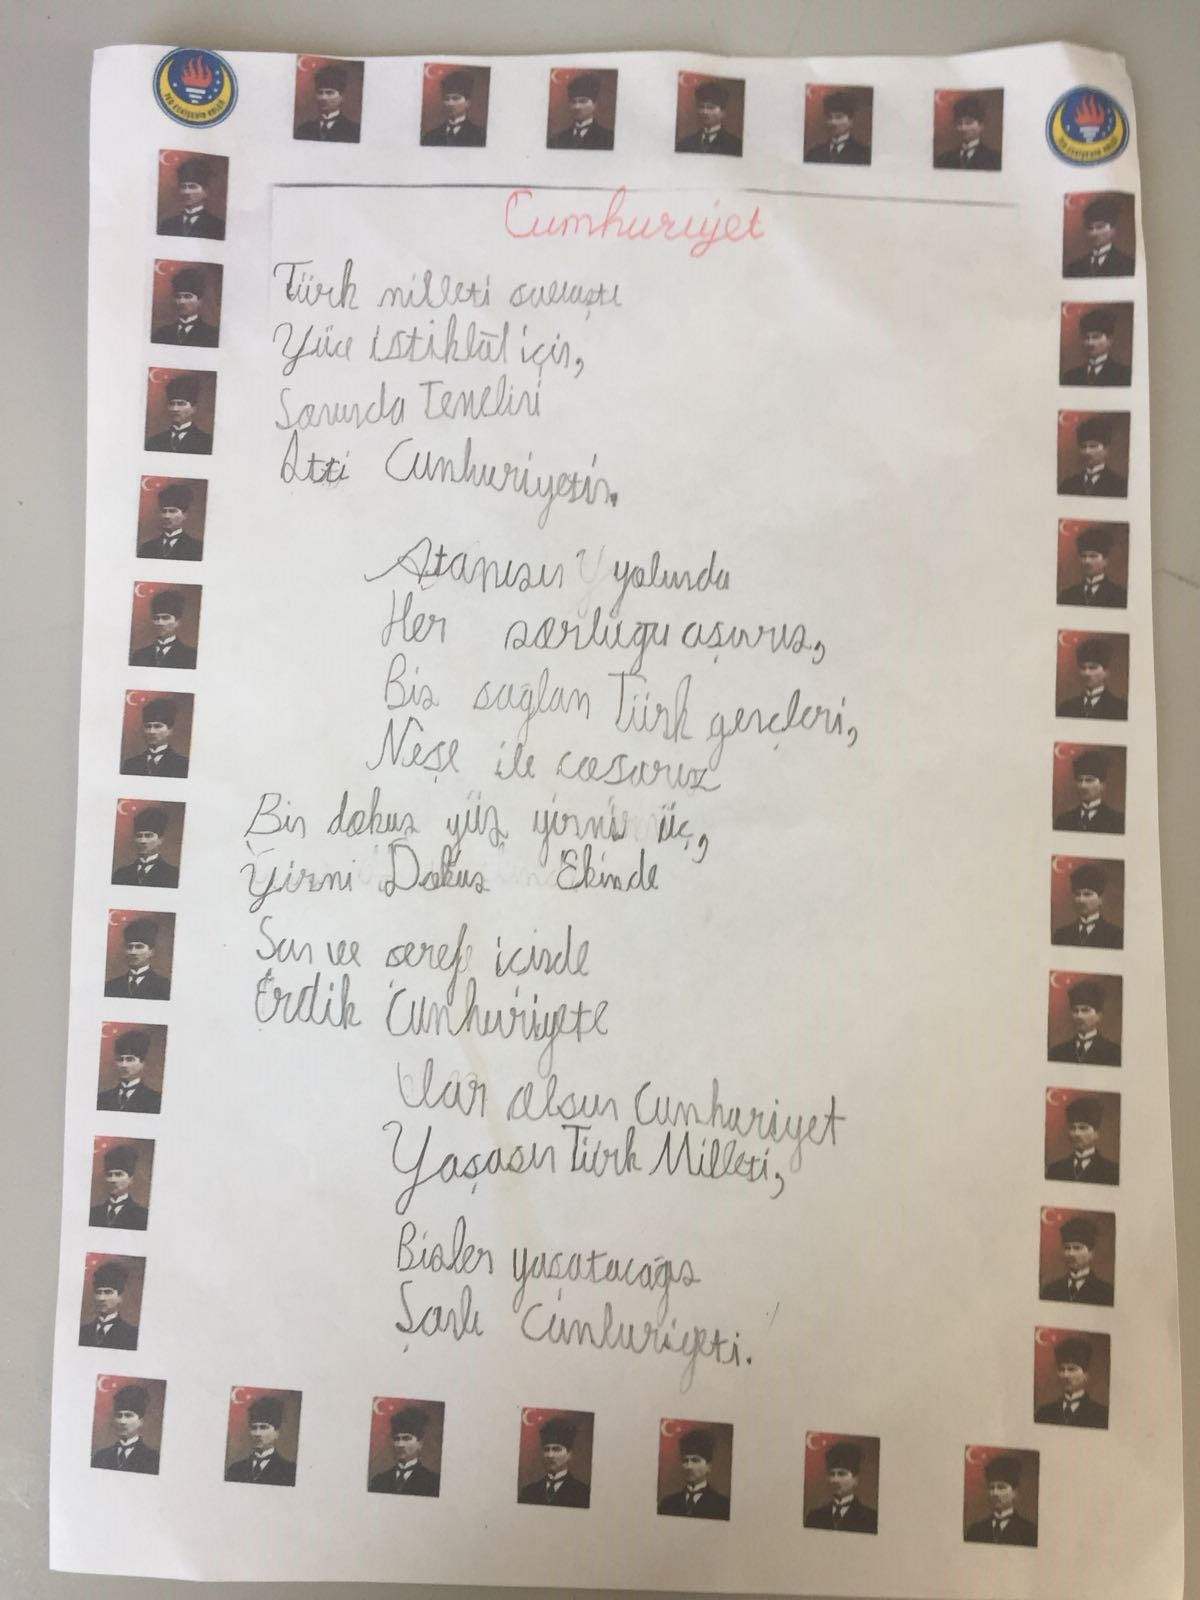 Cumhuriyet
Türk milleti savaştı
Yüce istiklâl için,
Sonunda Temelini
Attı Cumhuriyetin.
Atamızın yolunda
Her zorluğu aşarız,
Biz sağlam Türk gençleri,
Neşe ile coşarız
Bin dokuz yüz yirmi üç,
Yirmi Dokuz Ekimde
Şan ve şeref içinde
Erdik Cumhuriyete
Var olsun Cumhuriyet
Yaşasın Türk Milleti,
Bizler yaşatacağız
Şanlı Cumhuriyeti.